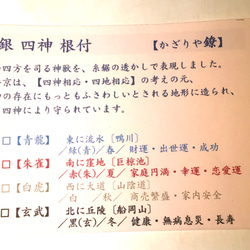 銀 四神 根付 【かざりや鐐】
四方を司る神獣を、糸鋸の透かしで表現しました。
京は、【四神相応・四地相応】の考えの元、
の存在にもっともふさわしいとされる地形に造られ、
四神により守られています。
□【青龍】 東に流水［鴨川］
／緑(青)／春／ 財運・出世運・成功
□【朱雀】 南に窪地［巨椋池］
／赤(朱)／夏／ 家庭円満・幸運・恋愛運
□【白虎】 西に大道［山陰道］
／白／秋／ 商売繁盛・家内安全
□【玄武】 北に丘陵［船岡山］
／黒(玄)／冬／ 健康・無病息災・長寿